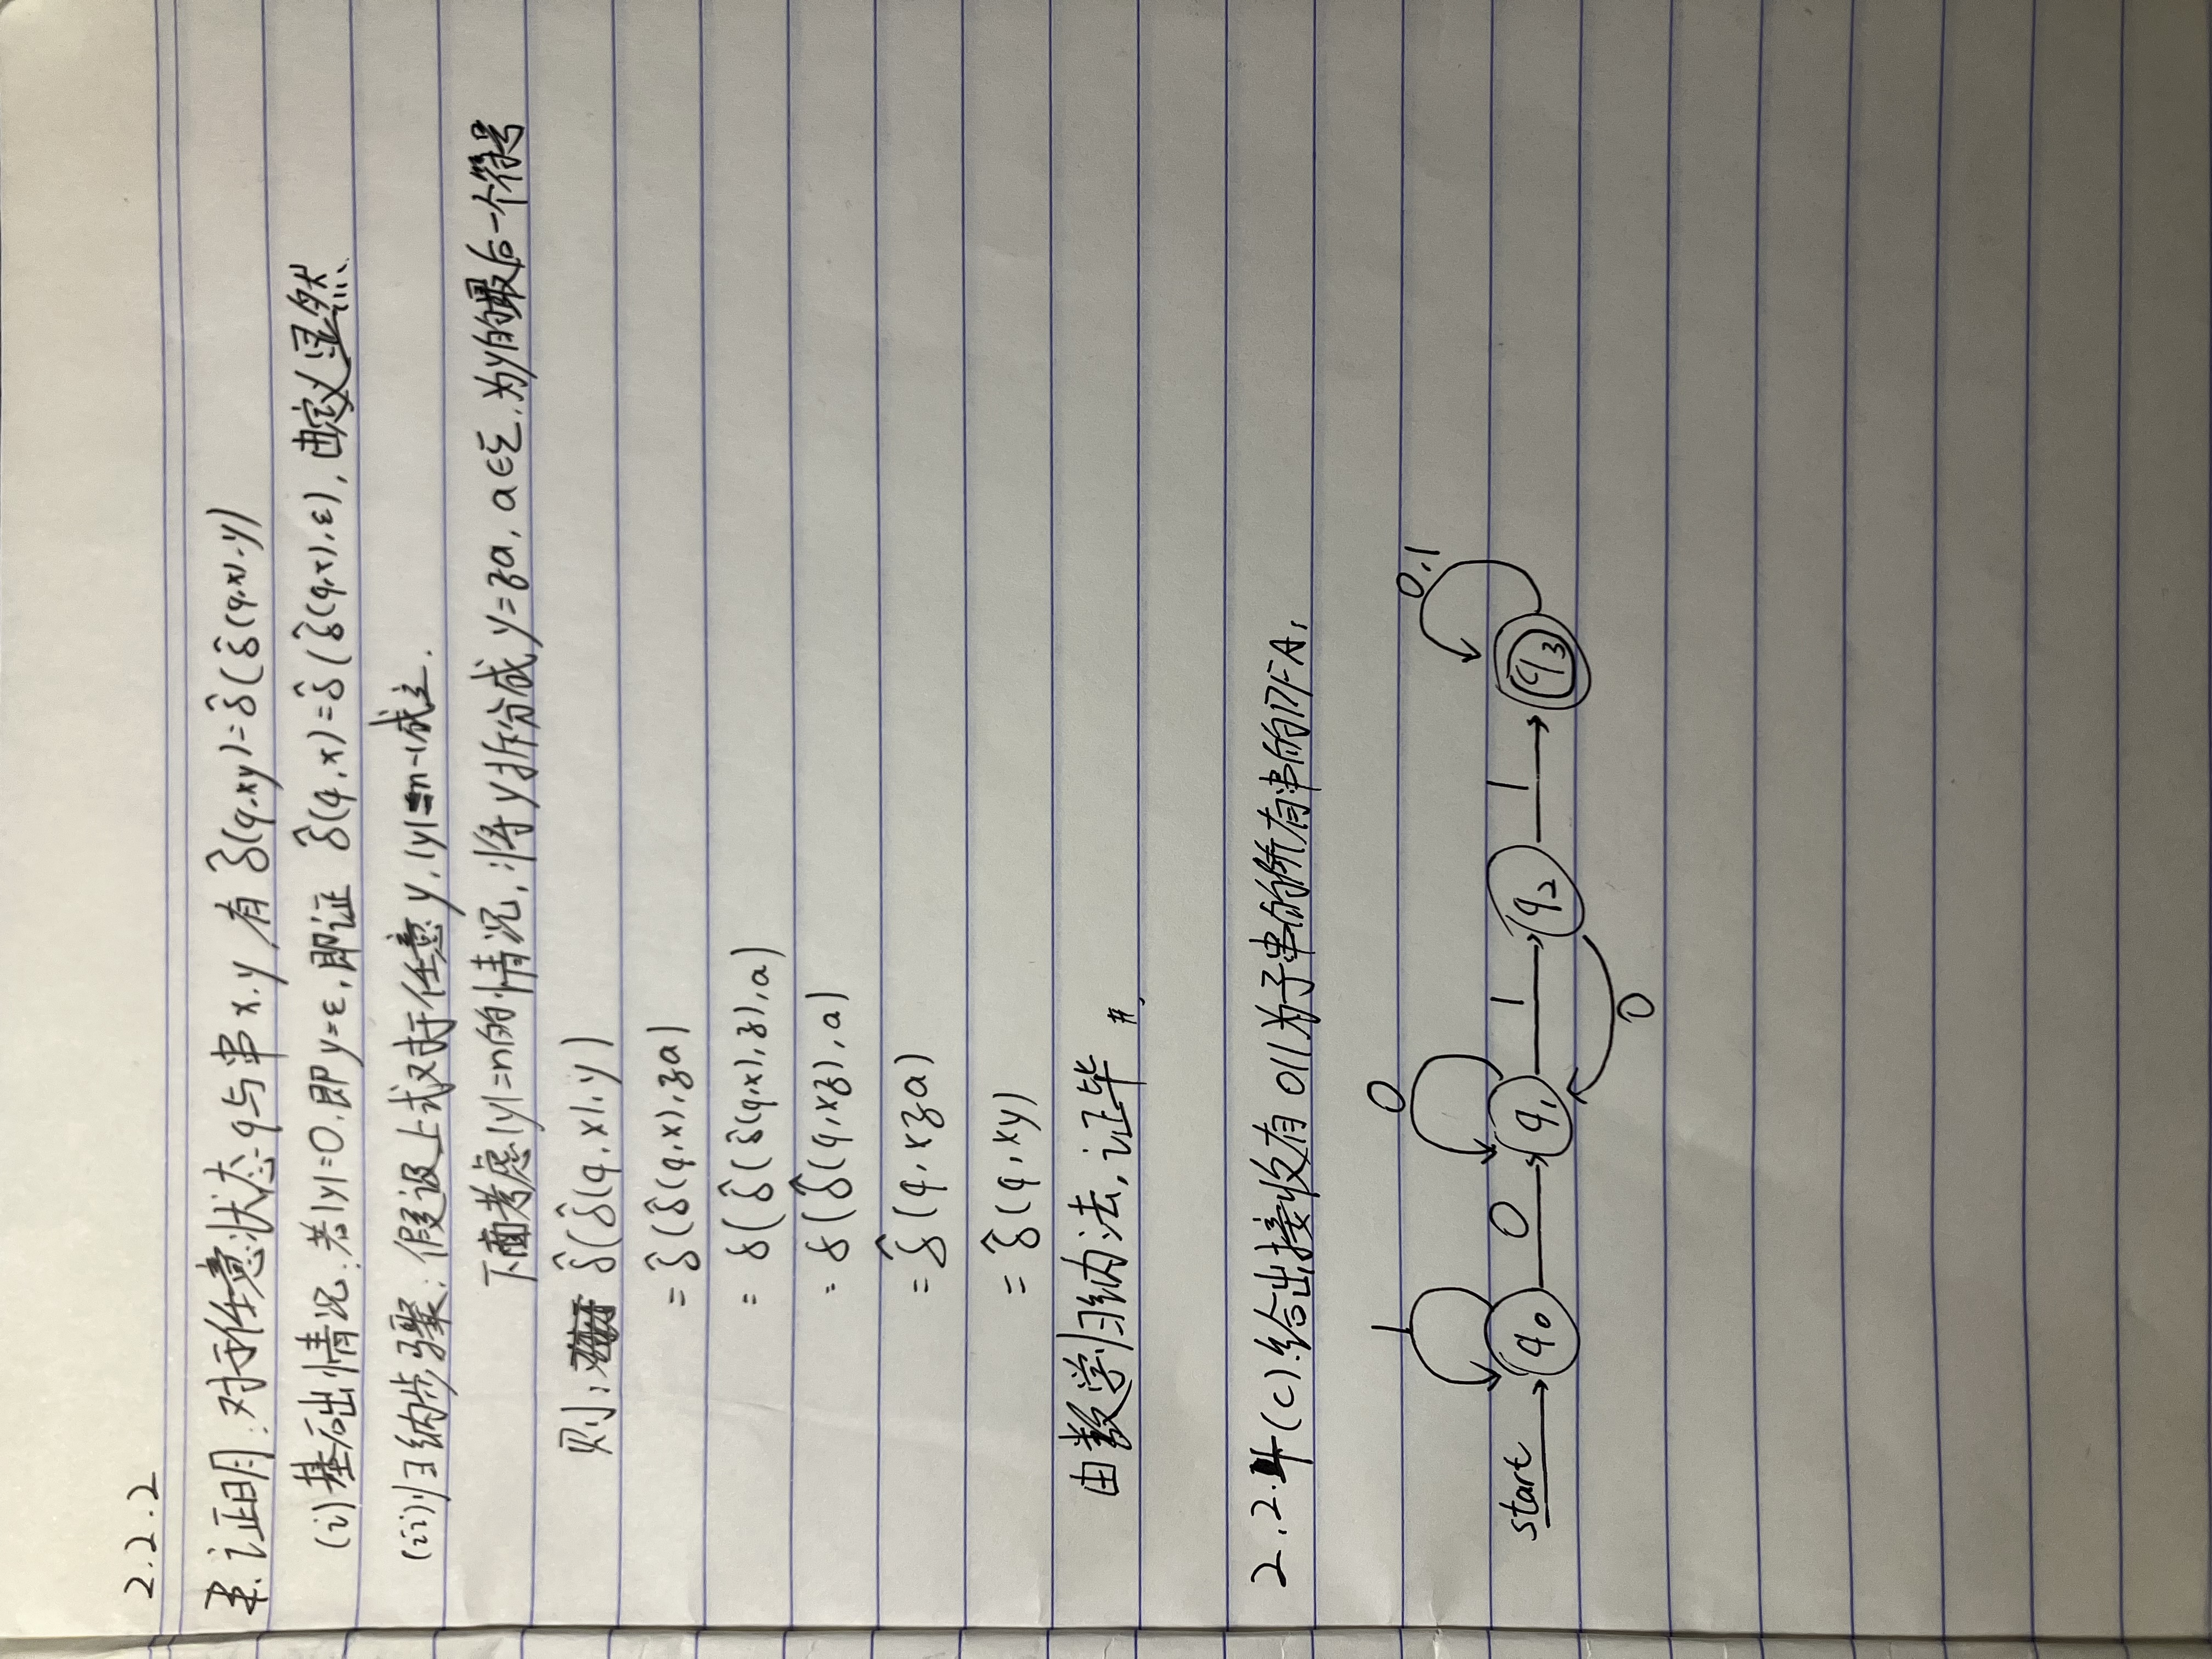 2.2.2
证明：对于任意状态q与串x.y,有 δ̂(q,xy)=δ̂(δ̂(q,x),y)
(i)基础情况：若|y|=0.即y=ε,即证 δ̂(q,x)=δ̂(δ̂(q,x),ε),由定义显然
(ii)归纳步骤：假设上式对于任意y,|y|=n-1成立.
下面考虑|y|=n的情况,将y拆分成y=za, a∈Σ.为y的最后一个符号
则: δ̂(δ̂(q,x),y)
= δ̂(δ̂(q,x),za)
= δ(δ̂(δ̂(q,x),z),a)
= δ(δ̂(q,xz),a)
= δ̂(q,xza)
= δ̂(q,xy)
由数学归纳法,证毕 #
2.2.4(c).给出接收有011为子串的所有串的DFA,
1 0 0,1
start q0 0 q1 1 q2 1 q3
0